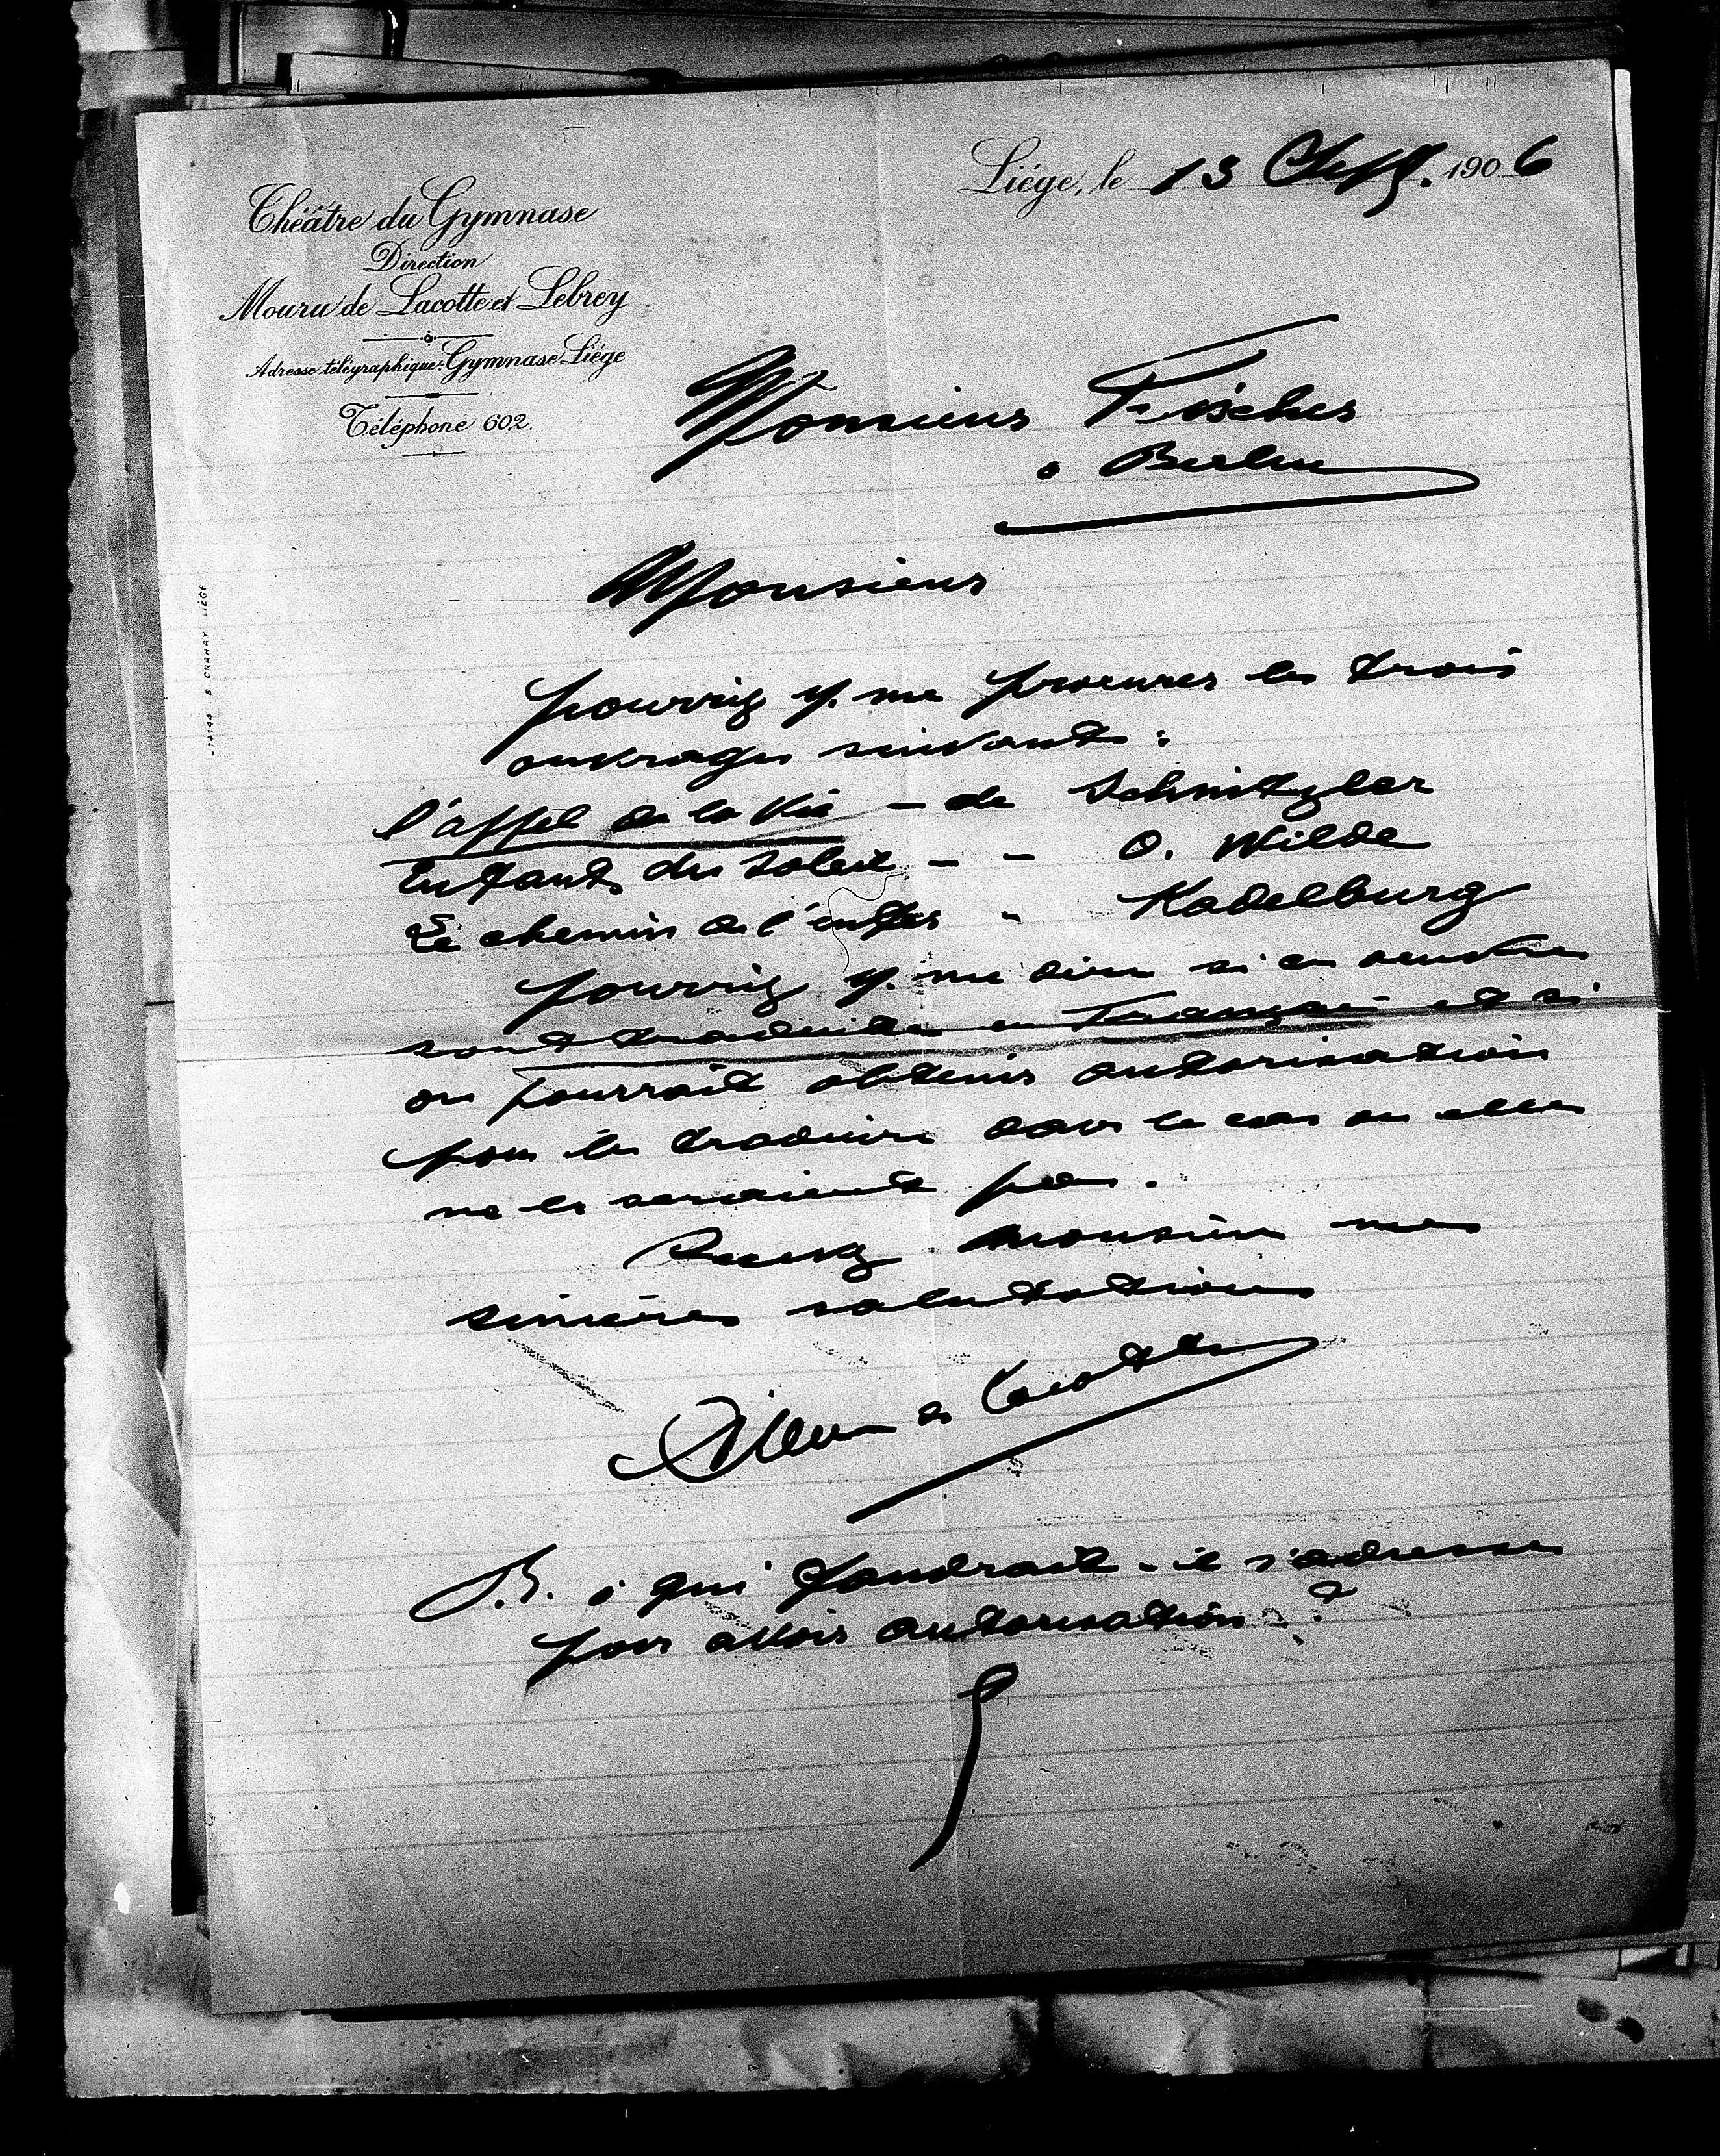 Liége, le 13 Sept. 1906
Théâtre du Gymnase
Direction
Mouru de Lacotte et Lebrey
Adresse télégraphique: Gymnase Liége
Téléphone 602.
Monsieur Fischer
à Berlin
Monsieur
pourriez v. me procurer les trois
ouvrages suivants :
l'appel de la Vie - de Schnitzler
Enfants du Soleil - - O. Wilde
Le chemin de l'enfer - Kadelburg
pourriez v. me dire si ces oeuvres
sont traduites en Français et si
on pourrait obtenir autorisation
pour les traduire dans le cas ou elles
ne le seraient pas.
Recevez monsieur mes
sincères salutations
Mouru de Lacotte
P.S. à qui faudrait-il s'adresser
pour avoir autorisation ?